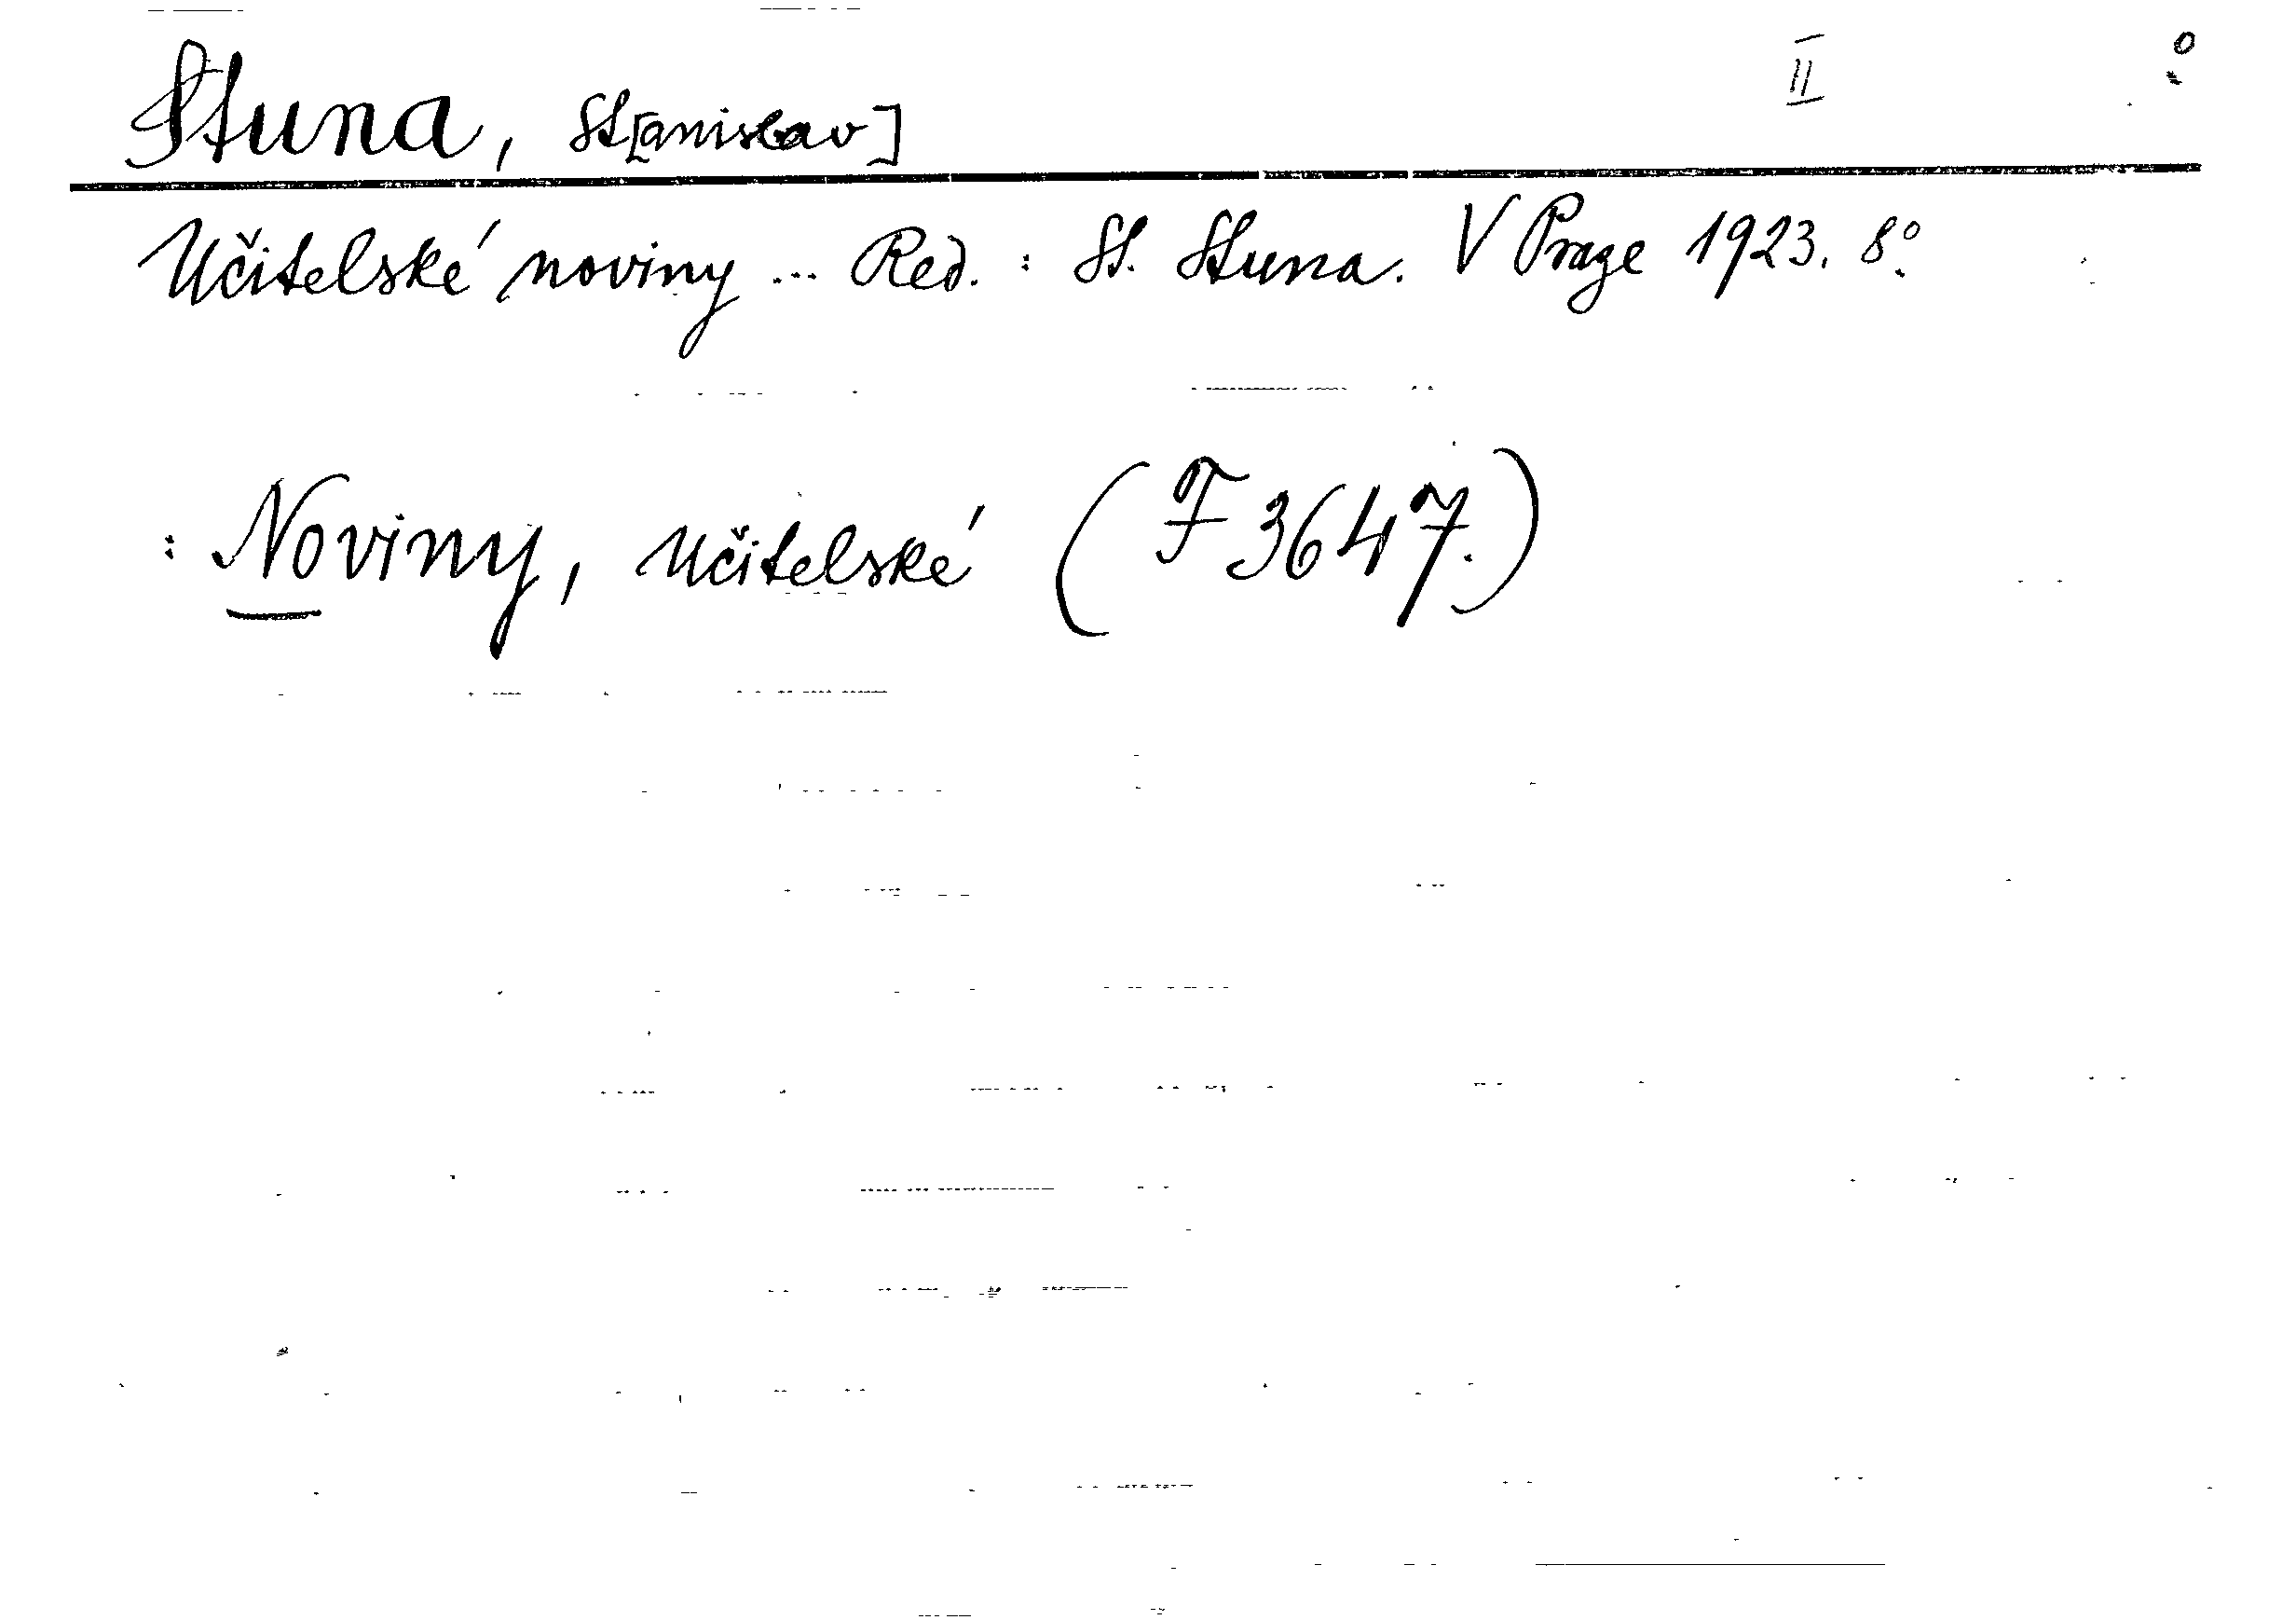 Stuna, St[anislav] II
Učitelské noviny ... Red. : St. Stuna. V Praze 1923. 8°.
: Noviny, učitelské (F 3647.)